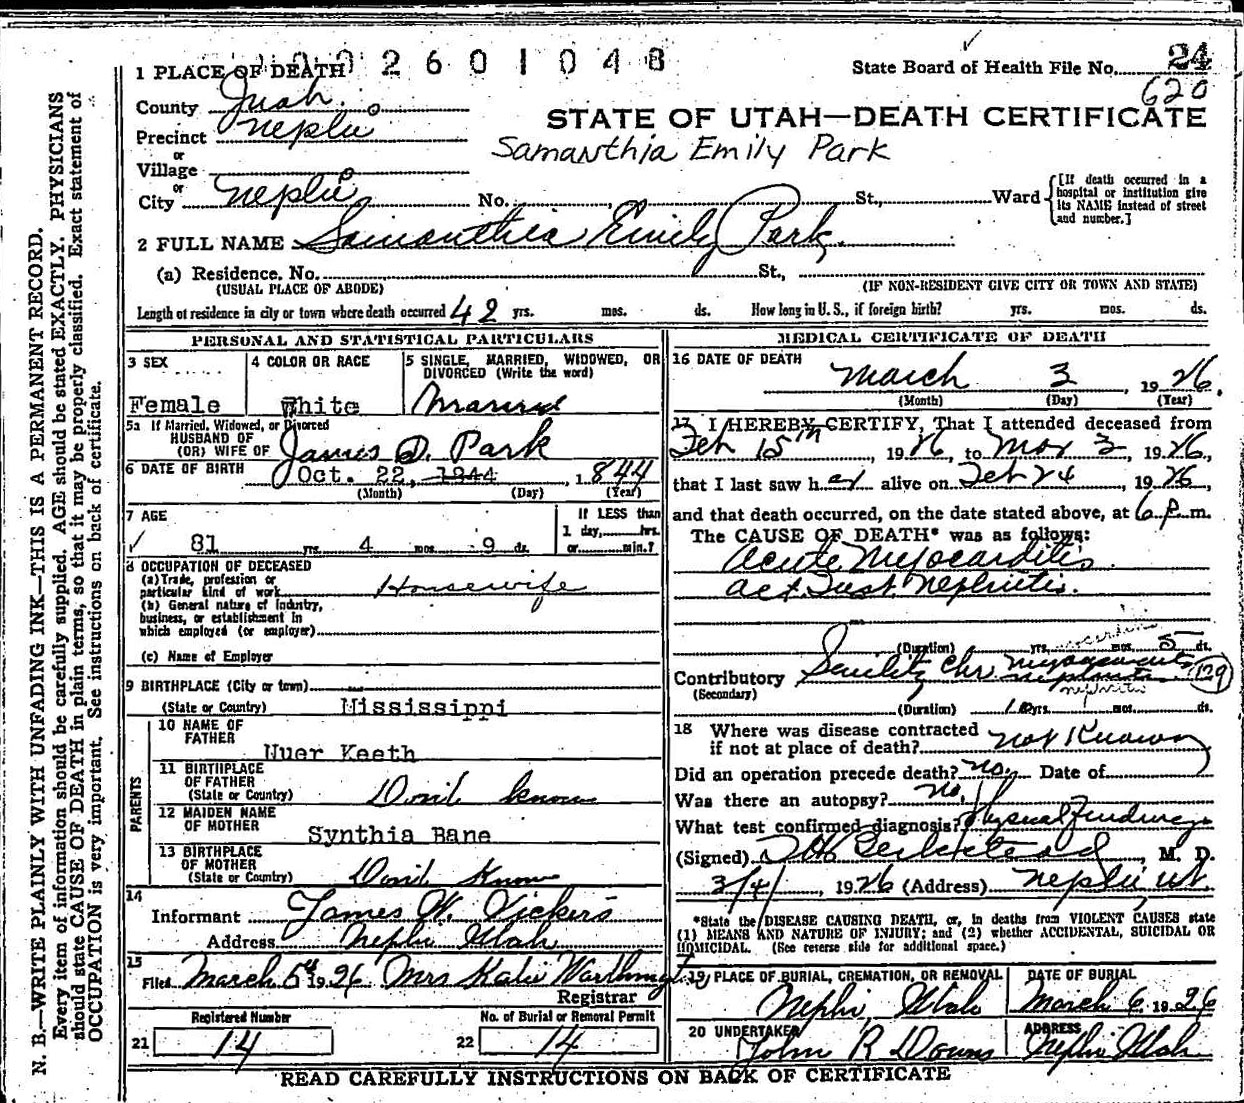 2601048
State Board of Health File No. 24
620
1 PLACE OF DEATH
County Juab.
STATE OF UTAH—DEATH CERTIFICATE
Precinct Nephi
Samanthia Emily Park
or
Village
or
City Nephi No. , St., Ward
[If death occurred in a
hospital or institution give
its NAME instead of street
and number.]
2 FULL NAME Samanthia Emily Park
(a) Residence. No. St.,
(USUAL PLACE OF ABODE) (IF NON-RESIDENT GIVE CITY OR TOWN AND STATE)
Length of residence in city or town where death occurred 42 yrs. mos. ds. How long in U. S., if foreign birth? yrs. mos. ds.
PERSONAL AND STATISTICAL PARTICULARS
3 SEX
Female
4 COLOR OR RACE
White
5 SINGLE, MARRIED, WIDOWED, OR
DIVORCED (Write the word)
Married
5a If Married, Widowed, or Divorced
HUSBAND OF
(OR) WIFE OF James D. Park
6 DATE OF BIRTH Oct. 22, 1944, 1844
(Month) (Day) (Year)
7 AGE
81 yrs. 4 mos. 9 ds.
If LESS than
1 day, hrs.
or min.?
8 OCCUPATION OF DECEASED
(a) Trade, profession or
particular kind of work Housewife
(b) General nature of industry,
business, or establishment in
which employed (or employer)
(c) Name of Employer
9 BIRTHPLACE (City or town)
(State or Country) Mississippi
PARENTS
10 NAME OF
FATHER
Nuer Keeth
11 BIRTHPLACE
OF FATHER
(State or Country) Don't know
12 MAIDEN NAME
OF MOTHER
Synthia Bane
13 BIRTHPLACE
OF MOTHER
(State or Country) Don't Know
14
Informant James W. Vickers
Address Nephi Utah
15
Filed March 5 1926 Mrs Katie
Registrar
Registered Number No. of Burial or Removal Permit
21 14 22 14
MEDICAL CERTIFICATE OF DEATH
16 DATE OF DEATH
March 3, 1926.
(Month) (Day) (Year)
17 I HEREBY CERTIFY, That I attended deceased from
Feb 15th, 1926, to Mar 3, 1926,
that I last saw her alive on Feb 24 1926,
and that death occurred, on the date stated above, at 6 p. m.
The CAUSE OF DEATH* was as follows:
Acute Myocarditis
Nephritis.
(Duration) yrs. mos. 5 ds.
myocarditis
Contributory Senility Chr
(Secondary)
nephritis
129
(Duration) 10 yrs. mos. ds.
18 Where was disease contracted
if not at place of death? not Known
Did an operation precede death? no. Date of
Was there an autopsy? no,
What test confirmed diagnosis? Physical findings
(Signed) , M. D.
3/4/, 1926 (Address) Nephi, Ut.
*State the DISEASE CAUSING DEATH, or, in deaths from VIOLENT CAUSES state
(1) MEANS AND NATURE OF INJURY; and (2) whether ACCIDENTAL, SUICIDAL OR
HOMICIDAL. (See reverse side for additional space.)
19 PLACE OF BURIAL, CREMATION, OR REMOVAL
Nephi, Utah
DATE OF BURIAL
March 6 1926
20 UNDERTAKER
John R Downs
ADDRESS
Nephi Utah
READ CAREFULLY INSTRUCTIONS ON BACK OF CERTIFICATE
N. B.—WRITE PLAINLY WITH UNFADING INK—THIS IS A PERMANENT RECORD.
Every item of information should be carefully supplied. AGE should be stated EXACTLY. PHYSICIANS
should state CAUSE OF DEATH in plain terms, so that it may be properly classified. Exact statement of
OCCUPATION is very important. See instructions on back of certificate.